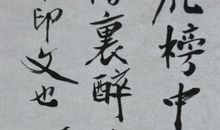 榜中
裏醉
印文也